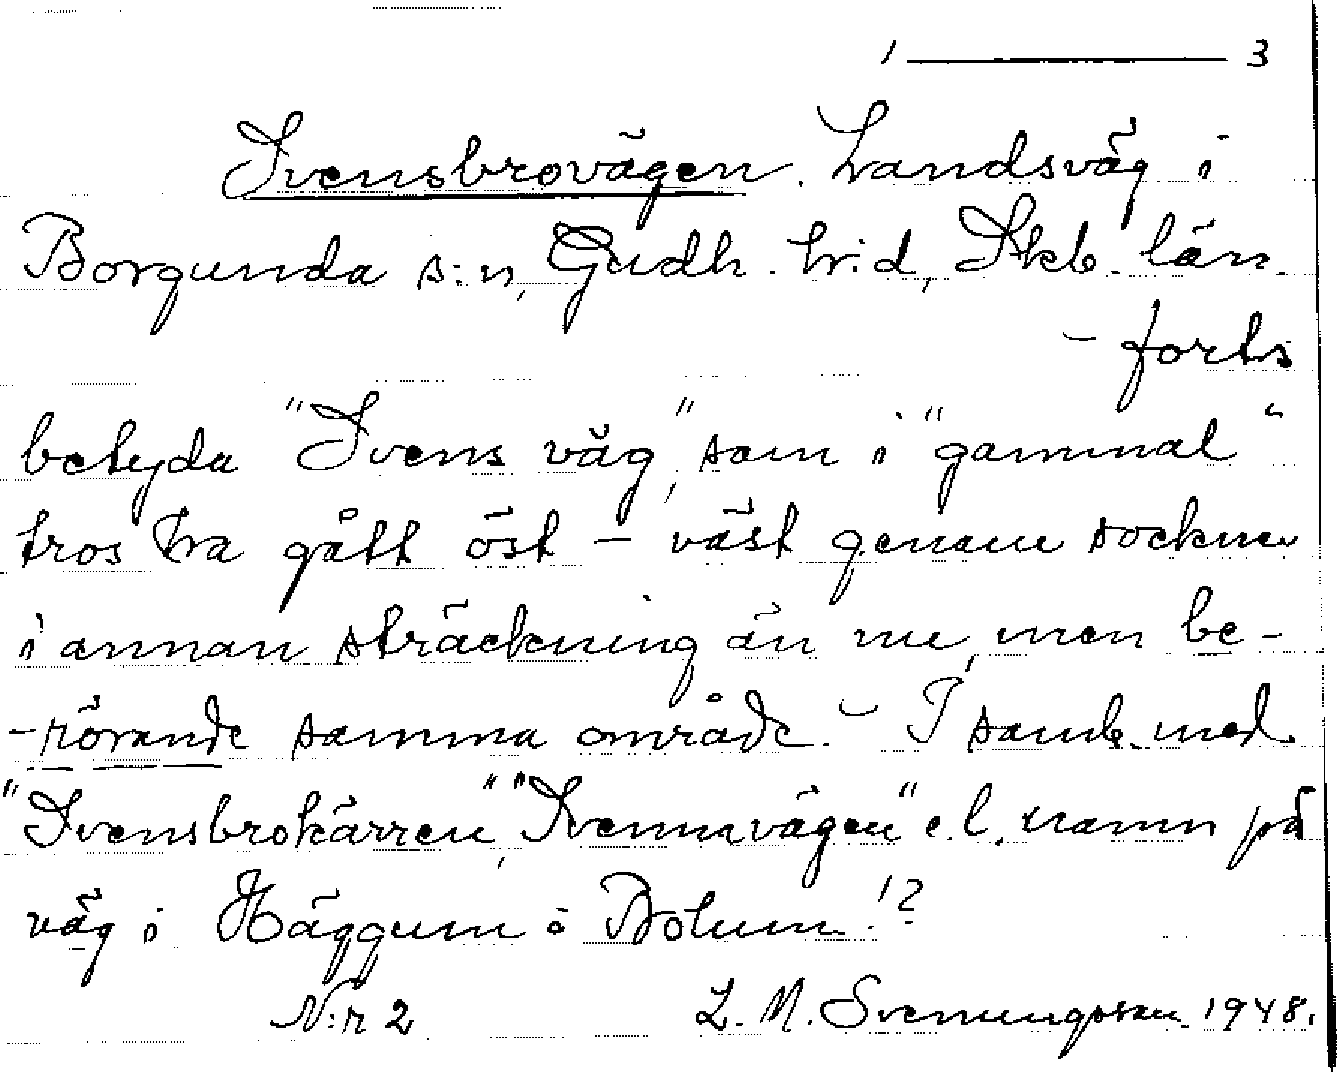 1 ——— 3
Svensbrovägen. Landsväg i
Borgunda s:n, Gudh. hrd, Skb. län.
– forts
betyda "Svens väg", som i "gammal"
tros ha gått öst – väst genom sockne
i annan sträckning än nu, men be-
-rörande samma område. – I samb. med
"Svensbrokärren", "Svennavägen" e.l. namn på
väg i Häggum o Bolum!?
N:r 2 L. M. Svenungsson 1948.